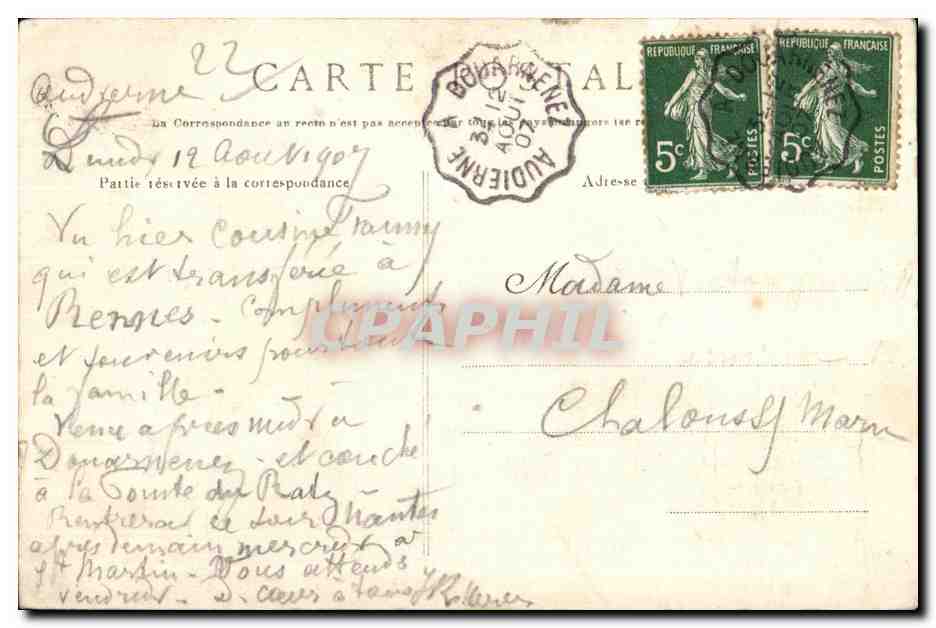 22
CARTE POSTALE
Audierne
La Correspondance au recto n'est pas acceptée par tous les pays étrangers (se
Lundi 12 Aout 1907
Partie réservée à la correspondance
Adresse
DOUARNENEZ A AUDIERNE
3E
12
AOUT
07
RÉPUBLIQUE FRANÇAISE
5c
POSTES
RÉPUBLIQUE FRANÇAISE
5c
POSTES
Vu hier cousine Fanny
qui est transferée à
Rennes - compliments
et souvenirs pour toute
la famille -
Venu apres midi à
Douarnenez - et couché
à la Pointe du Raz
Rentrerai ce soir Nantes
apres demain mercredi à
St Martin - Vous attends
vendredi -
Madame
Chalons s/ Marne
CPAPHIL